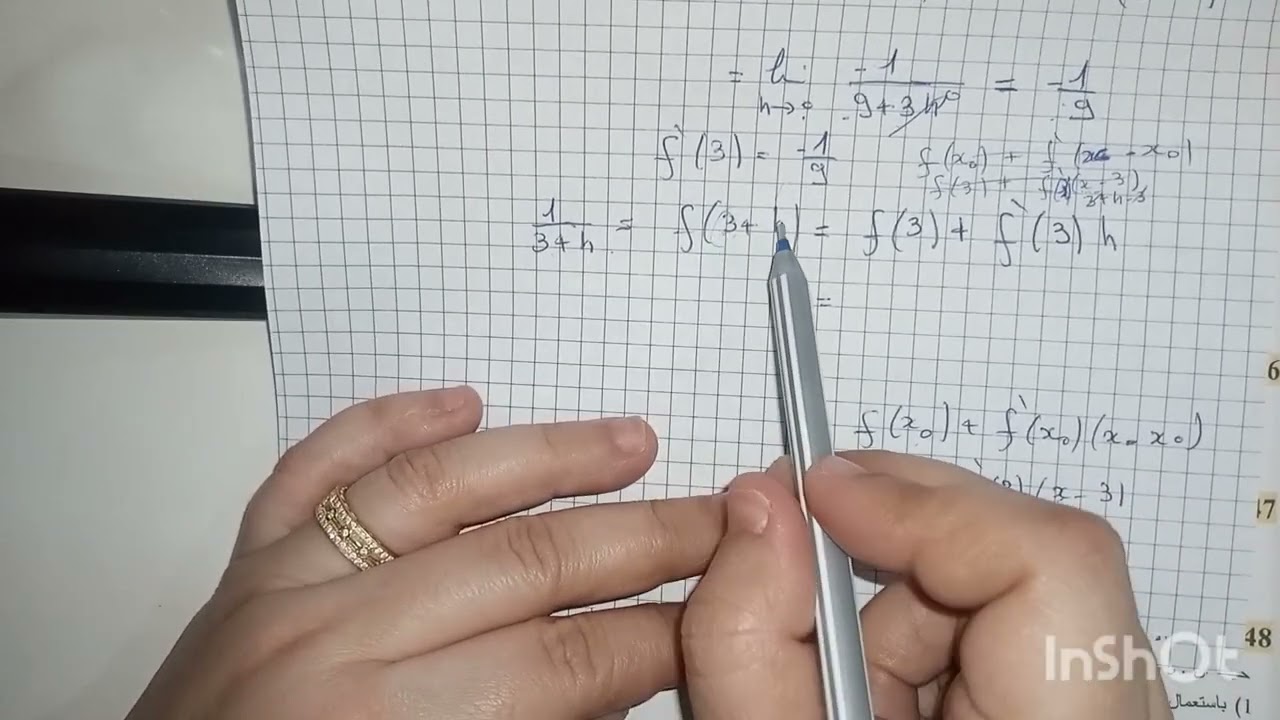 = lim h→0 -1/(9+3h) = -1/9
f'(3) = -1/9
f(x₀) + f'(x - x₀)
f(3) + f'(3)(x-3)
3+h-3
1/(3+h) = f(3+h) = f(3) + f'(3) h
=
f(x₀) + f'(x₀)(x - x₀)
(x-3)
6
47
48
InShOt
1) باستعمال